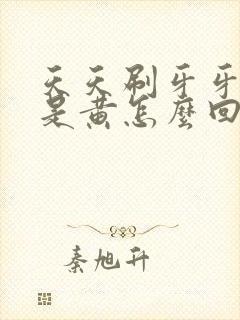 天天刷牙牙
是黄怎麼回
秦旭升